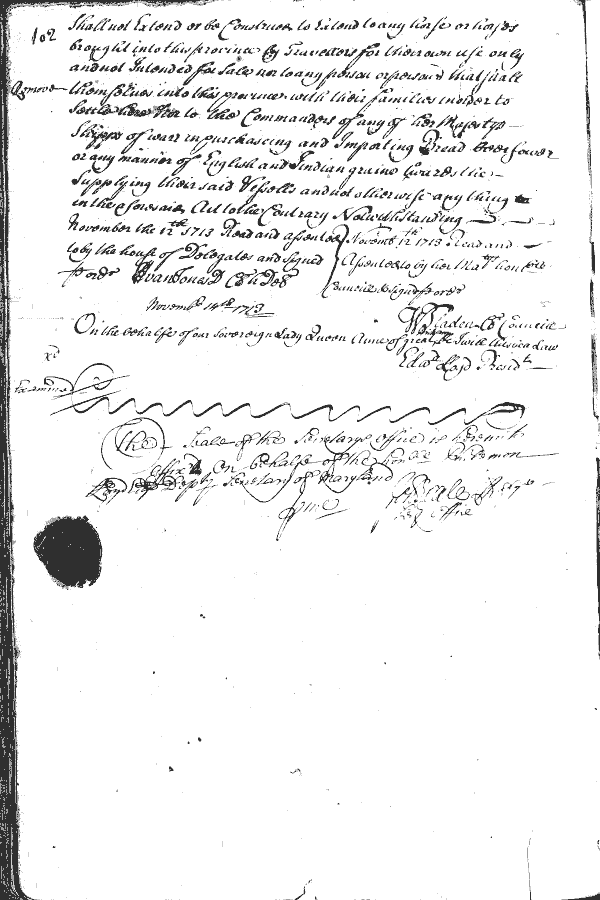 102
Shall not Extend or be Construed to Extend to any horse or horses
brought into this province by Travellers for their own use only
and not Intended for Sale nor to any person or persons that shall
Remove
themselves into this province with their families in order to
Settle here Nor to the Commanders of any of her Majestys
Shipps of warr in purchasing and Importing Bread Beer flower
or any manner of English and Indian graine towards the
Supplying their said Vessells and not otherwise any thing
in the aforesaid Act to the Contrary Notwithstanding
November the 12th 1713 Read and assented
to by the house of Delegates and Signed
p ord Evan Jones Cl h Del
Novemb 12th 1713 Read and
Assented to by her Matys honble
Councill & Signd p ordr
W Bladen Cl Councill
Novembr 14th 1713
On the behalfe of our Sovereign Lady Queen Anne of great Brittain &c I will this be a Law
Edwd Lloyd Presidt
Examined
The Seale of the Secretarys office is herewith
affixt On behalfe of the honble
Deputy Secretary of Maryland
p me
office